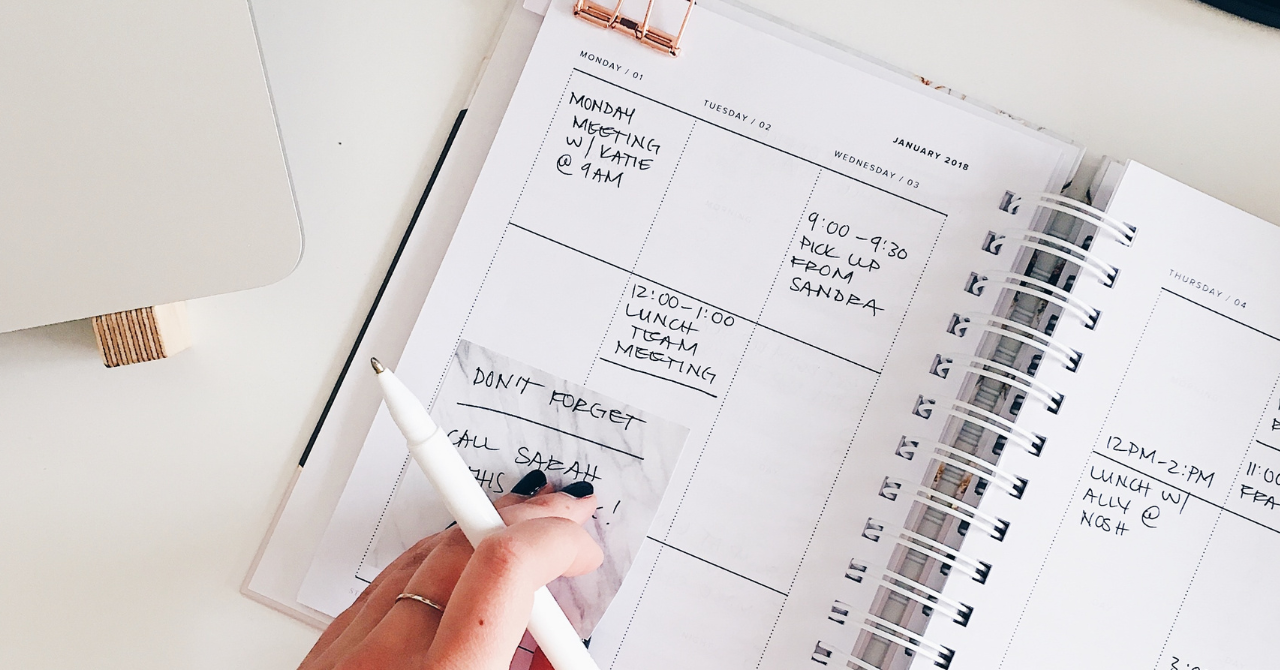 MONDAY / 01
MONDAY
MEETING
W/ KATIE
@ 9AM
TUESDAY / 02
12:00-1:00
LUNCH
TEAM
MEETING
JANUARY 2018
WEDNESDAY / 03
9:00-9:30
PICK UP
FROM
SANDRA
DON'T FORGET
CALL SARAH
THIS
!
THURSDAY / 04
12PM-2:PM
LUNCH W/
ALLY @
NOSH
11:00